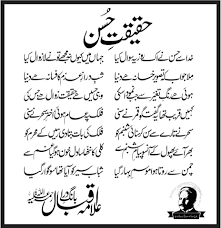 حقیقتِ حُسن
خدا سے حسن نے اک روز یہ سوال کیا جہاں میں کیوں نہ مجھے تو نے لازوال کیا
ملا جواب کہ تصویر خانہ ہے دنیا شبِ درازِ عدم کا فسانہ ہے دنیا
ہوئی ہے رنگِ تغیر سے جب نمود اس کی وہی حسیں ہے حقیقت زوال ہے جس کی
کہیں قریب تھا، یہ گفتگو قمر نے سنی فلک پہ عام ہوئی، اخترِ سحر نے سنی
سحر نے تارے سے سن کر سنائی شبنم کو فلک کی بات بتا دی زمیں کے محرم کو
بھر آئے پھول کے آنسو پیامِ شبنم سے کلی کا ننھا سا دل خون ہو گیا غم سے
چمن سے روتا ہوا موسمِ بہار گیا شباب سیر کو آیا تھا، سوگوار گیا
علامہ اقبال بانگِ درا